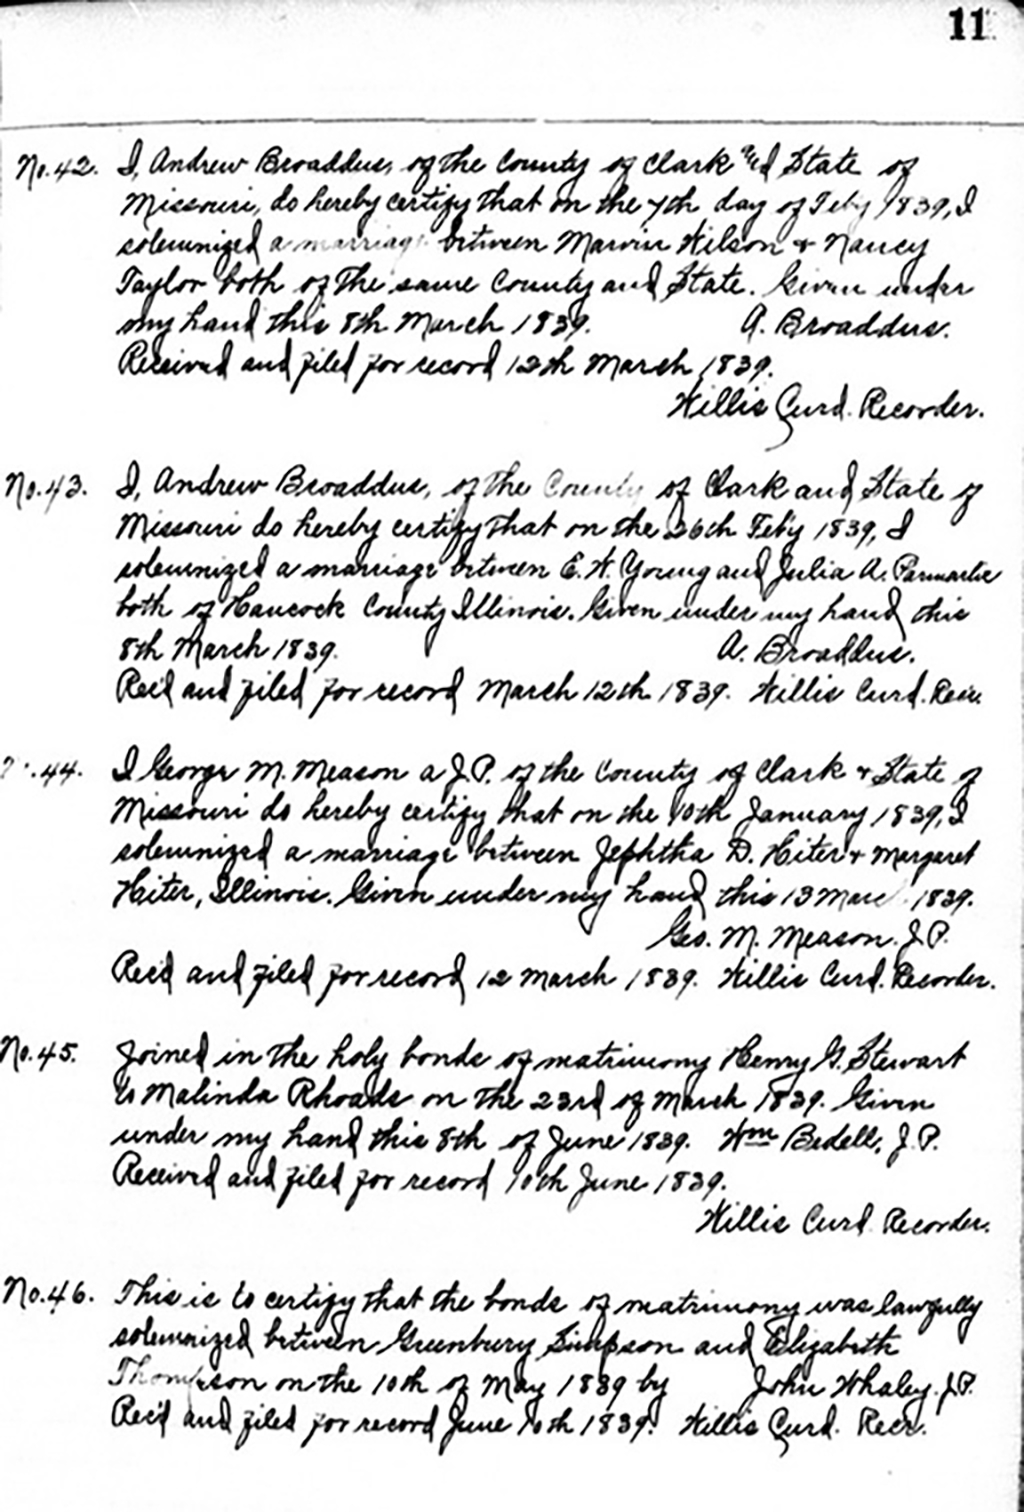 11
No. 42. I, Andrew Broaddus, of the County of Clark and State of
Missouri, do hereby certify that on the 7th day of Feb'y 1839, I
solemnized a marriage between Marvin Wilson & Nancy
Taylor both of the same County and State. Given under
my hand this 8th March 1839. A. Broaddus.
Received and filed for record 12th March 1839.
Willis Curd. Recorder.
No. 43. I, Andrew Broaddus, of the County of Clark and State of
Missouri do hereby certify that on the 26th Feb'y 1839, I
solemnized a marriage between E. W. Young and Julia A. Parmartie
both of Hancock County Illinois. Given under my hand this
8th March 1839. A. Broaddus.
Rec'd and filed for record March 12th 1839. Willis Curd. Recr.
44. I George M. Meason a J.P. of the County of Clark & State of
Missouri do hereby certify that on the 10th January 1839, I
solemnized a marriage between Jephtha D. Hiter & Margaret
Hiter, Illinois. Given under my hand this 13 Marc 1839.
Geo. M. Meason. J.P.
Rec'd and filed for record 12 March 1839. Willis Curd. Recorder.
No. 45. Joined in the holy bonds of matrimony Henry G. Stewart
to Malinda Rhoads on the 23rd of March 1839. Given
under my hand this 8th of June 1839. Wm Bedell, J.P.
Received and filed for record 10th June 1839.
Willis Curd. Recorder.
No. 46. This is to certify that the bonds of matrimony was lawfully
solemnized between Greenbury Simpson and Elizabeth
Thompson on the 10th of May 1839 by John Whaley. J.P.
Rec'd and filed for record June 10th 1839. Willis Curd. Recr.